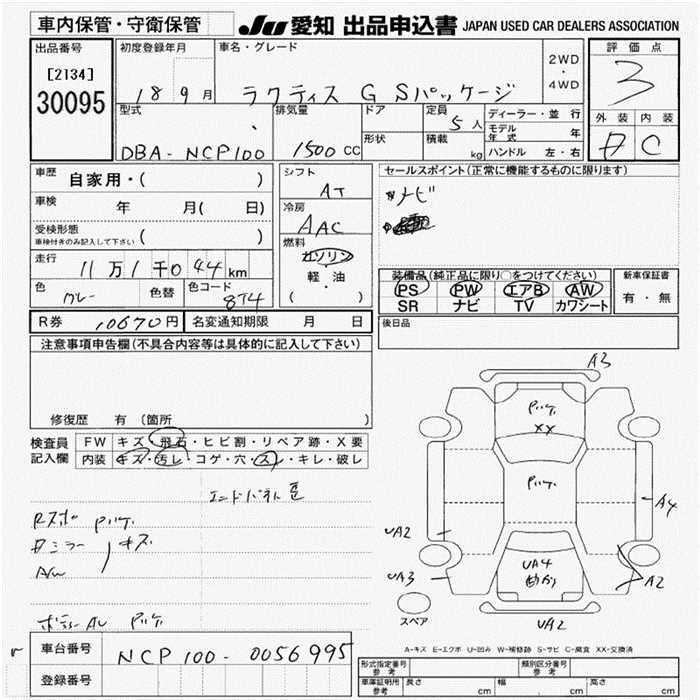 車内保管・守衛保管
JU 愛知 出品申込書 JAPAN USED CAR DEALERS ASSOCIATION
出品番号
[2134]
30095
初度登録年月
18 9月
車名・グレード
ラクティス G Sパッケージ
2WD
・
4WD
評価点
3
外装 内装
C
型式
DBA-NCP100
排気量
1500 CC
ドア
形状
定員
5人
積載
kg
ディーラー・並行
モデル年式 年
ハンドル 左・右
車歴
自家用・( )
車検
年 月( 日)
受検形態
車検付きのみ記入して下さい ( )
走行
11万1千044km
色
グレー
色替
色コード
8T4
シフト
AT
冷房
AAC
燃料
ガソリン
軽・油
( )
セールスポイント(正常に機能するものに限ります)
ナビ
装備品(純正品に限り○をつけてください)
PS PW エアB AW
SR ナビ TV カワシート
新車保証書
有・無
後日品
R券 10670円 名変通知期限 月 日
注意事項申告欄(不具合内容等は具体的に記入して下さい)
修復歴 有 (箇所 )
検査員
記入欄
FW キズ・飛石・ヒビ割・リペア跡・X要
内装 キズ・汚レ・コゲ・穴・スレ・キレ・破レ
Rスポ
ミラー キズ
A/W
A3
XX
A4
UA2
UA3
UA4
A2
UA2
スペア
A-キズ E-エクボ U-凹み W-補修跡 S-サビ C-腐食 XX-交換済
車台番号
NCP100-0056995
登録番号
形式指定番号 参考
類別区分番号 参考
車庫証明用 参考
長さ cm 幅 cm 高さ cm